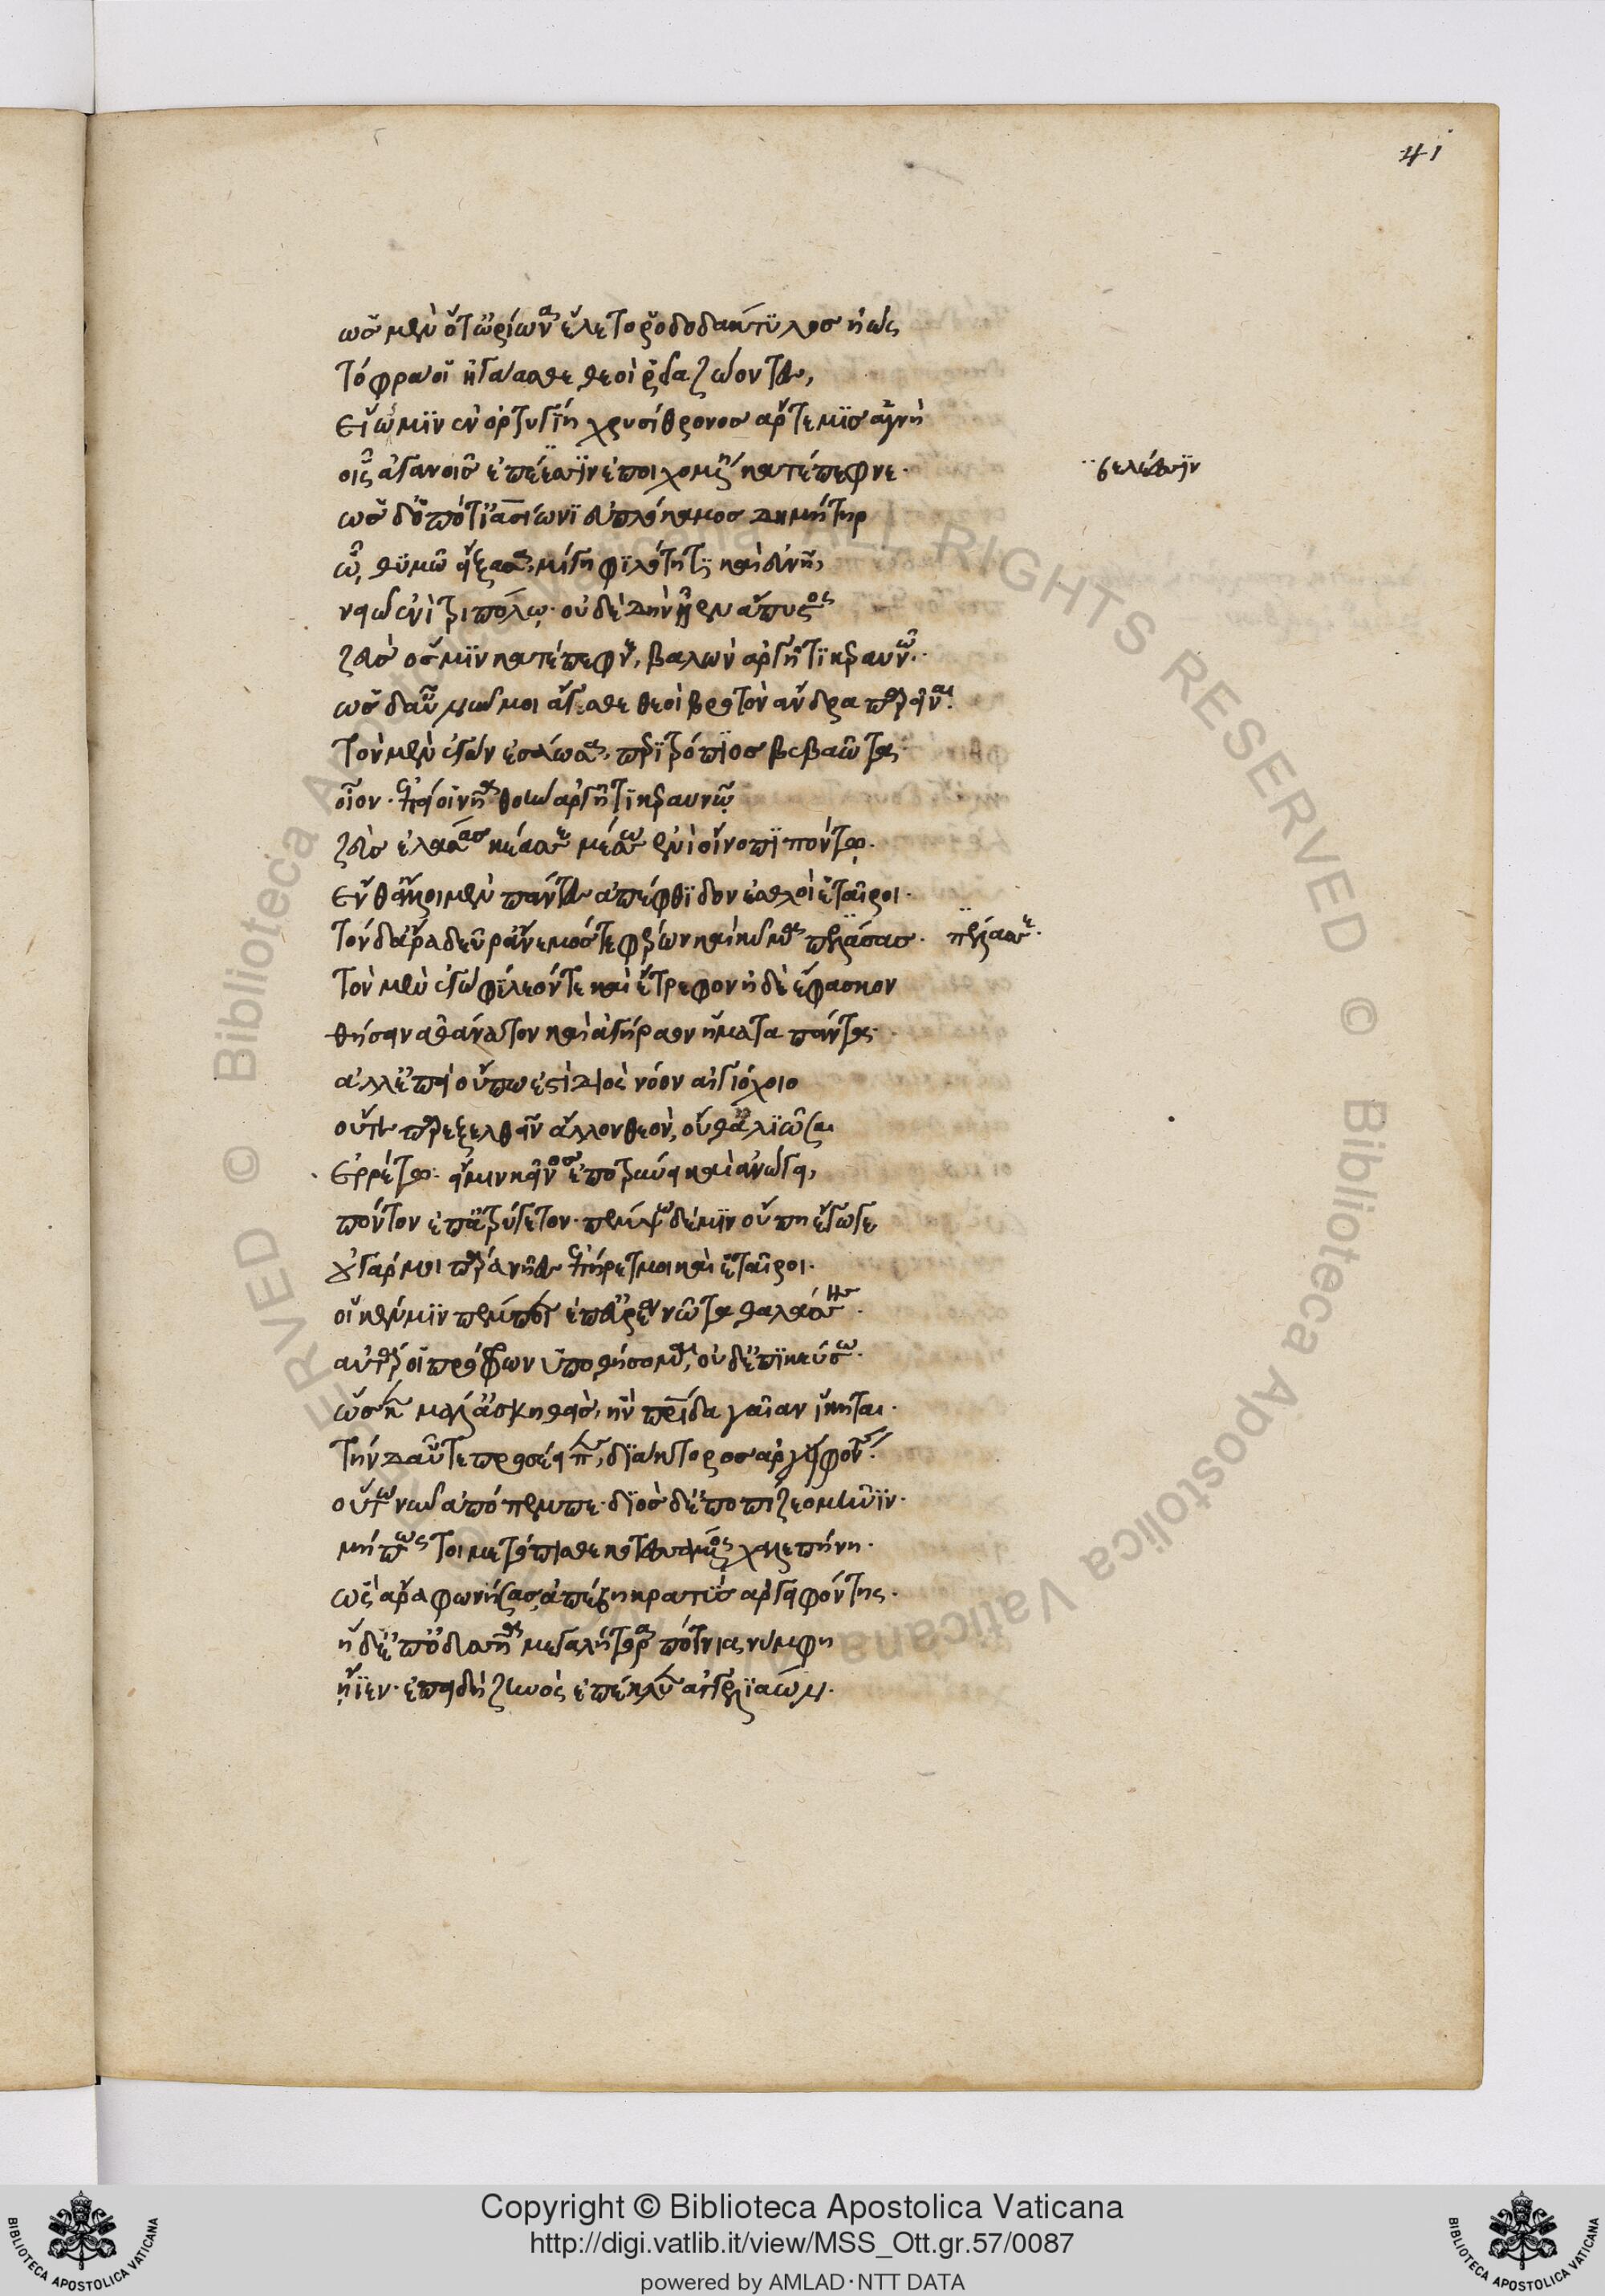 41
ὡς μὲν ὅτ' ὠρίων' ἕλετο ῥοδοδάκτυλος ἠώς
τόφρά οἱ ἠγάασθε θεοὶ ῥεῖα ζώοντες,
εἵως μιν ἐν ὀρτυγίῃ χρυσόθρονος ἄρτεμις ἁγνὴ
οἷς ἀγανοῖς ἐπέεσσιν ἐποιχομένη κατέπεφνε· βελέεσσιν
ὡς δ' ὁπότ' ἰασίωνι ἐϋπλόκαμος δημήτηρ
ᾧ θυμῷ εἴξασα, μίγη φιλότητι καὶ εὐνῇ,
νειῷ ἐνὶ τριπόλῳ· οὐδὲ δὴν ἦεν ἄπυστος
ζεὺς ὅς μιν κατέπεφνε, βαλὼν ἀργῆτι κεραυνῷ.
ὡς δ' αὖ νῦν μοι ἄγασθε θεοὶ βροτὸν ἄνδρα παρεῖναι.
τὸν μὲν ἐγὼν ἐσάωσα, περὶ τρόπιος βεβαῶτα
οἶον· ἐπεί οἱ νῆα θοὴν ἀργῆτι κεραυνῷ
ζεὺς ἐλάσας ἐκέασσε μέσῳ ἐνὶ οἴνοπι πόντῳ.
ἔνθ' ἄλλοι μὲν πάντες ἀπέφθιθον ἐσθλοὶ ἑταῖροι.
τὸν δ' ἄρα δεῦρ' ἄνεμός τε φέρων καὶ κῦμα πελάσας. πέλασσε.
τὸν μὲν ἐγὼ φίλεόν τε καὶ ἔτρεφον ἠδὲ ἔφασκον
θήσειν ἀθάνατον καὶ ἀγήραον ἤματα πάντα.
ἀλλ' ἐπεὶ οὔπως ἐστὶ διὸς νόον αἰγιόχοιο
οὔτε παρεξελθεῖν ἄλλον θεὸν, οὔθ' ἁλιῶσαι
ἐρρέτω· εἴ μιν κεῖνος ἐποτρύνει καὶ ἀνώγει,
πόντον ἐπ' ἀτρύγετον· πέμψω δέ μιν οὔπη ἔγωγε
οὐ γάρ μοι πάρα νῆες ἐπήρετμοι καὶ ἑταῖροι.
οἵ κέν μιν πέμποιεν ἐπ' εὐρέα νῶτα θαλάσσης.
αὐτάρ οἱ πρόφρων ὑποθήσομαι, οὐδ' ἐπικεύσω.
ὥς κε μάλ' ἀσκηθὴς, ἣν πατρίδα γαῖαν ἵκηται.
τὴν δ' αὖτε προσέειπε, διάκτορος ἀργειφόντης.
οὕτω νῦν ἀπόπεμπε· διὸς δ' ἐποπίζεο μῆνιν.
μή πως τοι μετόπισθε κοτεσσάμενος χαλεπήνῃ.
ὣς ἄρα φωνήσας ἀπέβη κρατὺς ἀργειφόντης.
ἡ δ' ἐπ' ὀδυσσῆα μεγαλήτορα πότνια νύμφη
ἤϊεν· ἐπειδὴ ζηνὸς ἐπέκλυεν ἀγγελιάων.